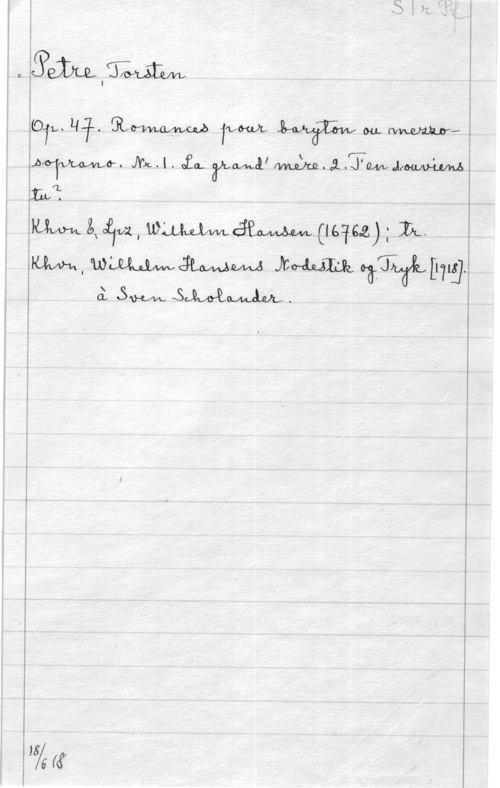 S 1 r Pf
Petre, Torsten
Op. 47. Romances pour baryton ou mezzo-
soprano. Nr. 1. La grand' mère. 2. T'en souviens
tu?
Khvn &, Lpz, Wilhelm Hansen (16762); tr.
Khvn, Wilhelm Hansens Nodestik og Tryk [1918].
à Sven Scholander.
18/6 18